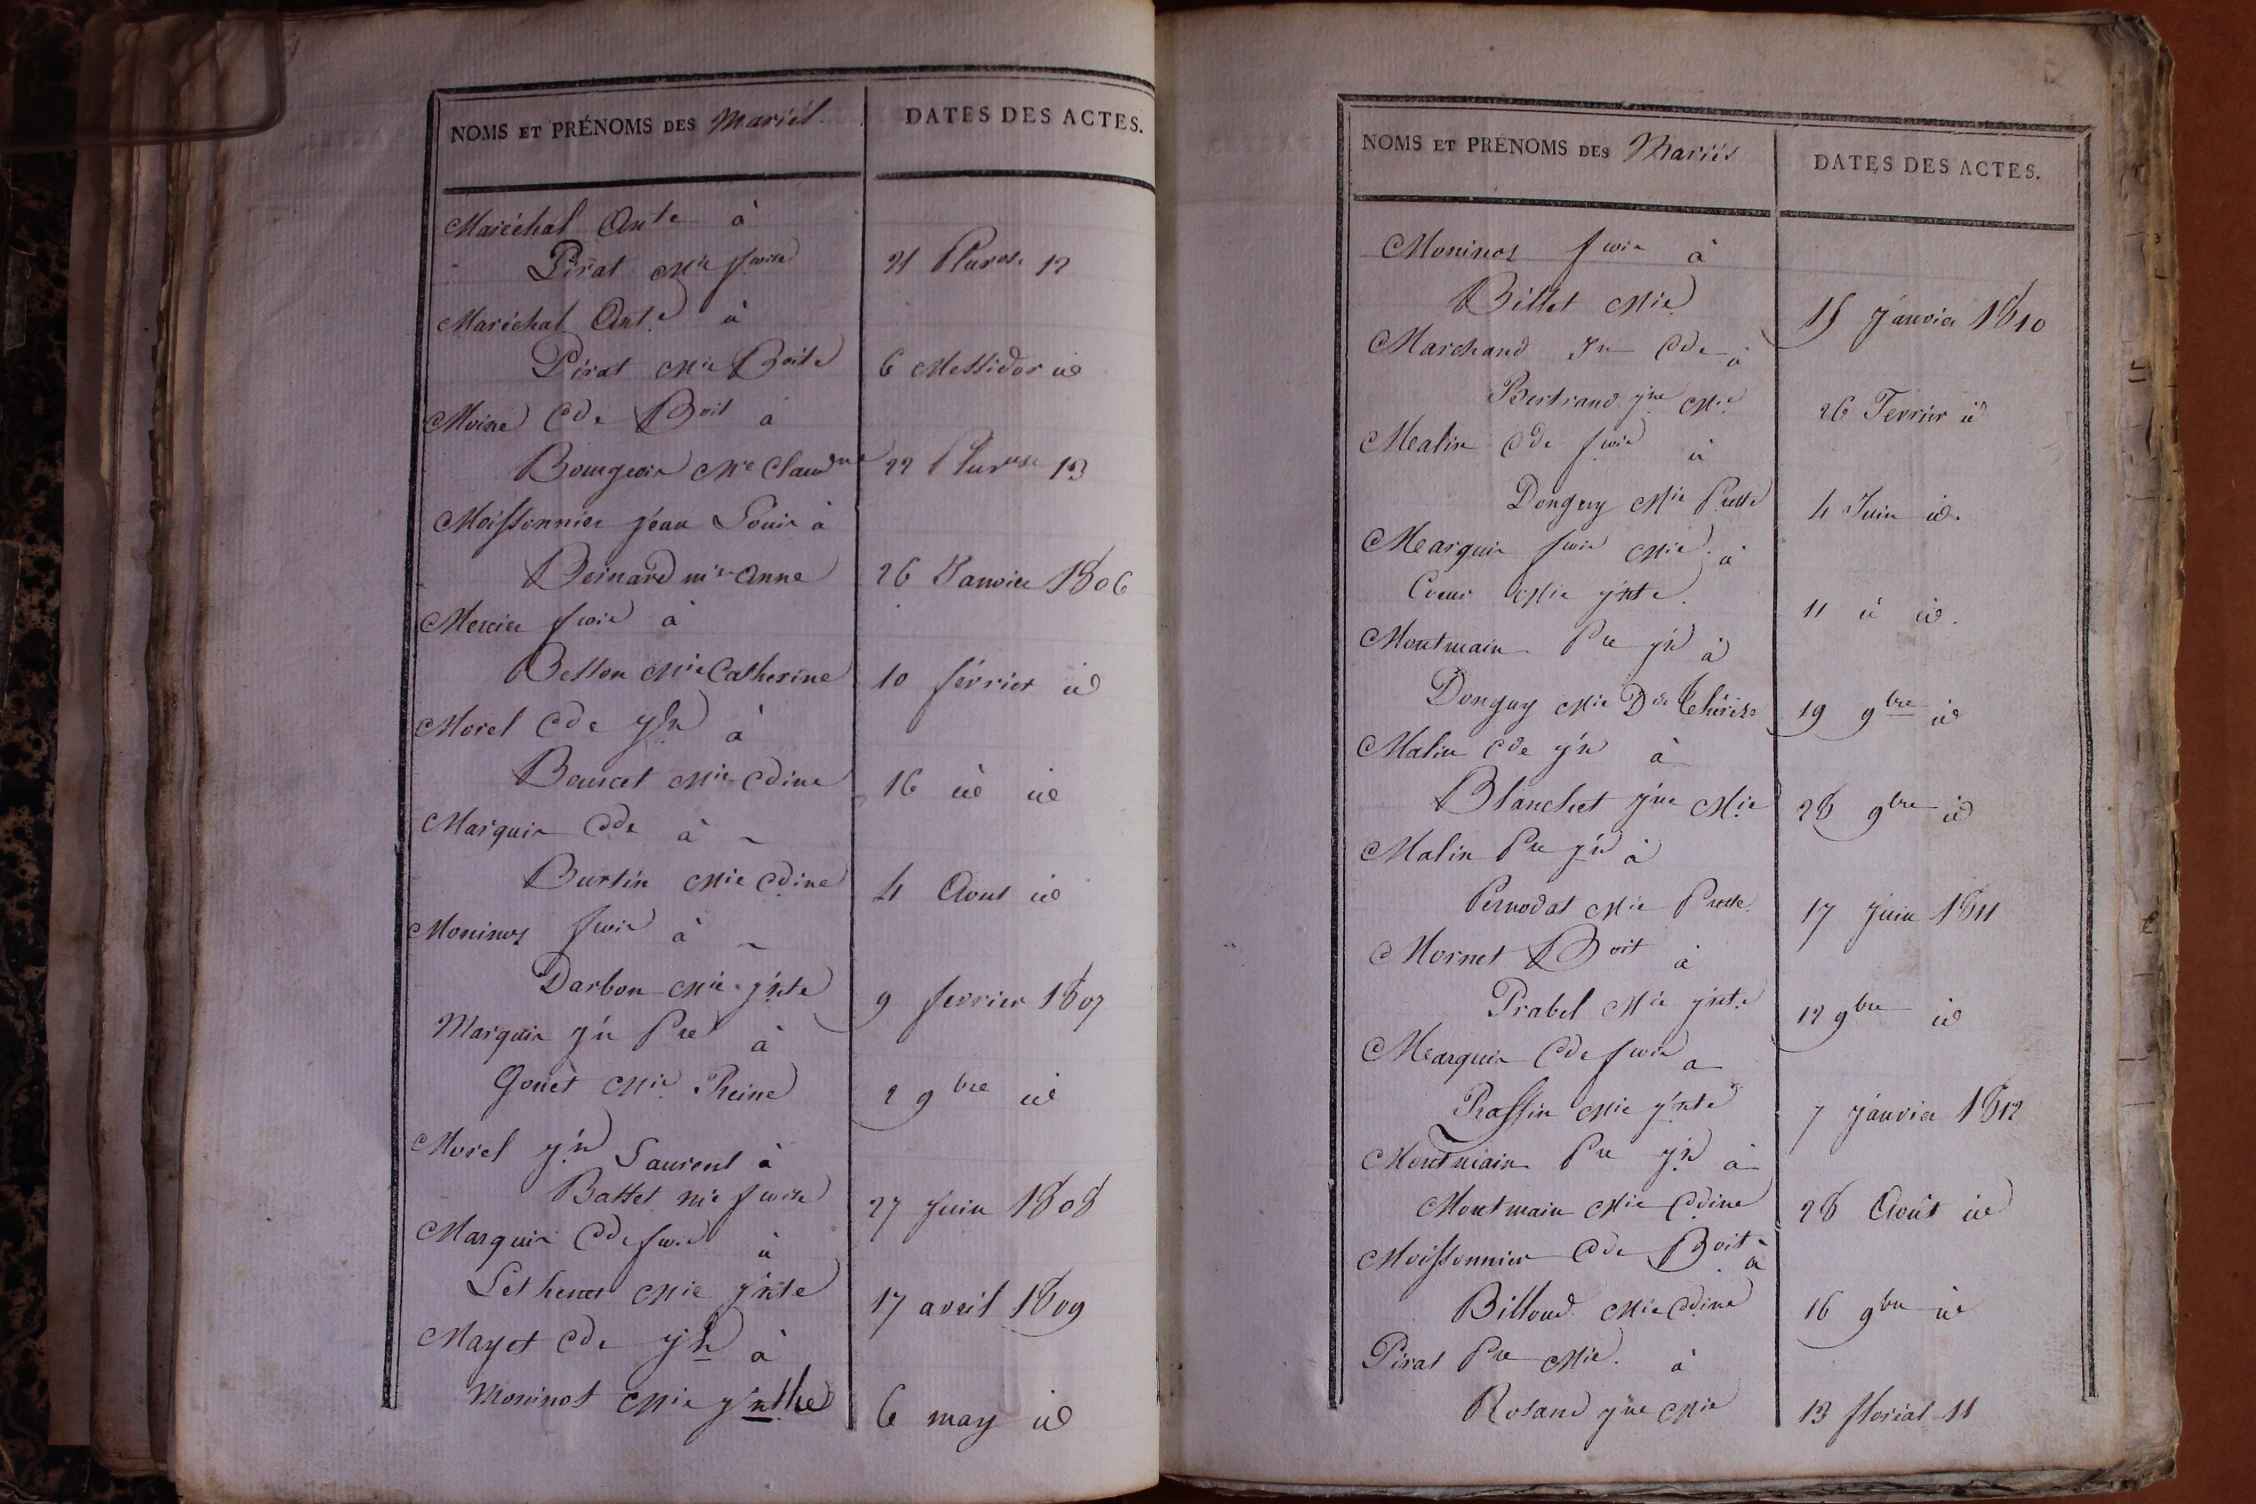 NOMS ET PRÉNOMS DES Mariés. DATES DES ACTES.
Maréchal Ante à
Pirat Mie fcoise 21 Pluvose 12
Maréchal Ante à
Pirat Mie Boite 6 Messidor id
Moine Cde Boit à
Bourgeois Mie Claudine 22 Pluvose 13
Moissonnier jean Louis à
Bernard mie Anne 26 Janvier 1806
Mercier fcois à
Besson Mie Catherine 10 février id
Morel Cde jh à
Bouscet Mie Cdine 16 id id
Marquis Cde à
Burtin Mie Cdine 4 Aout id
Moninos fcois à
Darbon Mie jnte 9 fevrier 1807
Marquis jn Pre à
Gouët Mie Reine 2 9bre id
Morel jn Laurent à
Battet mie fcoise 27 Juin 1808
Marquis Cde fcois à
Mie jnte 17 avril 1809
Mayet Cde jh à
Moninot Mie jnthe 6 may id
NOMS ET PRÉNOMS DES Mariés DATES DES ACTES.
Moninos fcois à
Billet Mie 15 Janvier 1810
Marchand Jn Cde à
Bertrand jne Mie 26 Fevrier id
Malin Cde fcois à
Donguy Mie Prette 4 Juin id.
Marquis fcois Mie à
Coeur Mie jnte. 11 id id.
Montmain Pre jn à
Donguy Mie Dse Thérèse 19 9bre id
Malin Cde jn à
Blanchet jne Mie 28 9bre id
Malin Pre jn à
Pernodat Mie Prette 17 juin 1811
Mornet Boit à
Prabel Mie jnte 12 9bre id
Marquis Cde fcois a
Raffin Mie jnte 7 janvier 1812
Montmain Pre jn à
Montmain Mie Cdine 28 Août id
Moissonnier Cde Boit à
Billoud Mie Cdine 16 9bre id
Pirat Pre Mie. à
Roland jne Mie 13 floréal 11